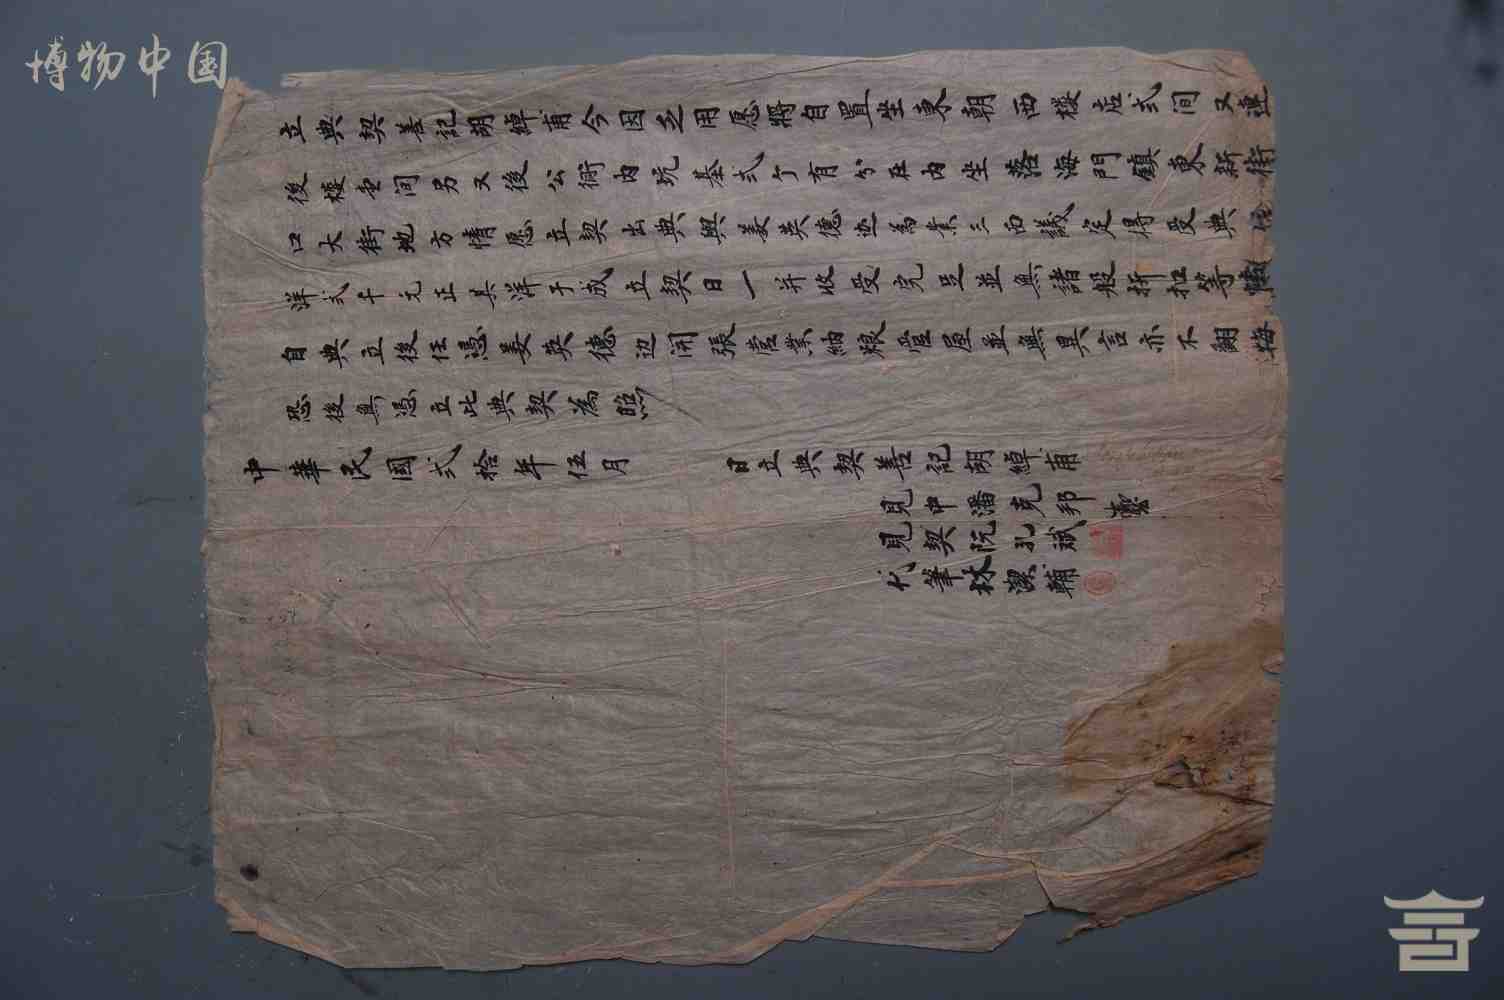 博物中国
立典契善記胡綽甫今因乏用愿將自置坐東朝西楼店弍间又連
後楼壱间另又後公衕内坑基弍个有分在内坐落海門鎮東新街
口大街地方情愿立契出典與姜英德边為業三面議定得受典
洋弍千元正其洋于成立契日一并收受完足並無諸般折扣等
自典立後任憑姜英德边開張営業納粮管屋並無異言亦不翻悔
恐後無憑立此典契為照
中華民國弍拾年伍月 日立典契善記胡綽甫
見中潘克邦
見契阮孔斌
代筆林潔輔